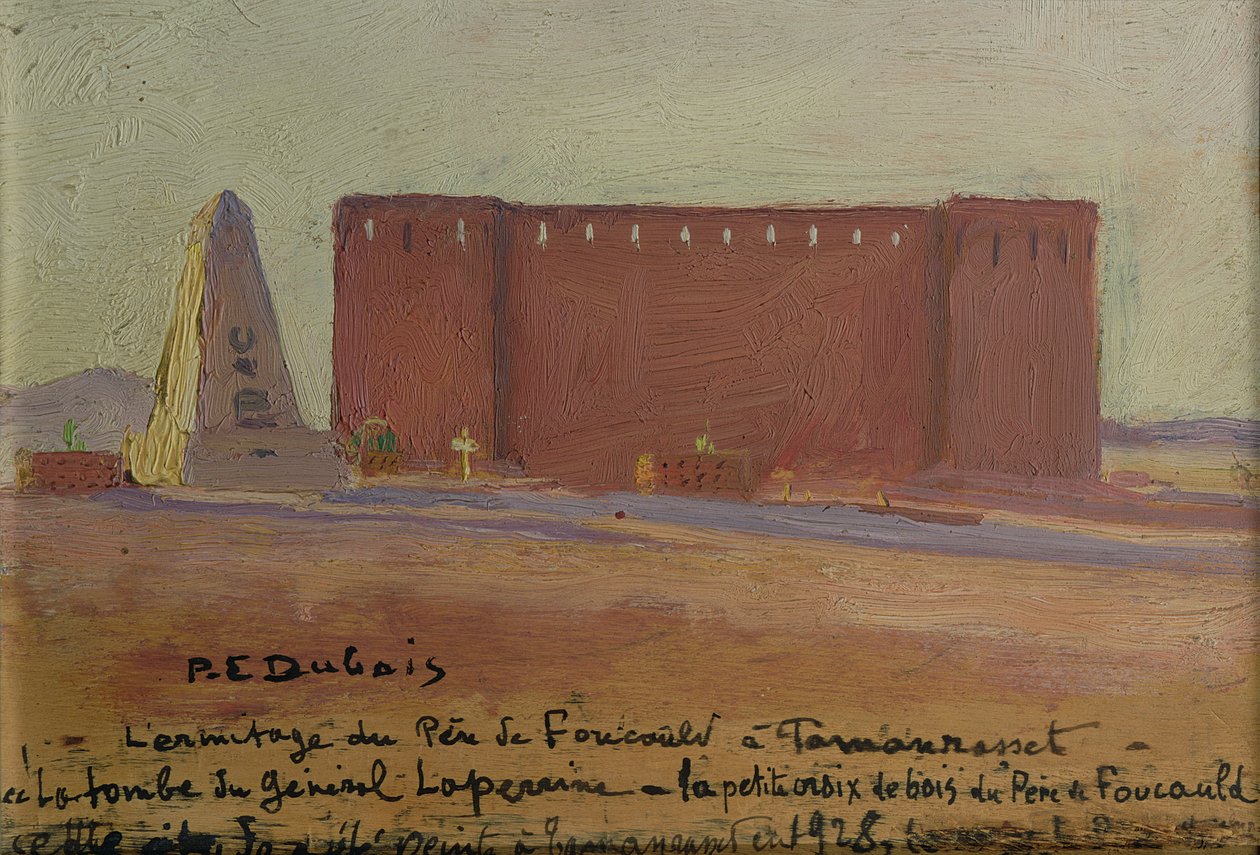 P.E Dubois
L'ermitage du Père de Foucauld à Tamanrasset -
La tombe du Général Laperrine - la petite croix de bois du Père de Foucauld
cette peint à Tamanrasset en 1928,